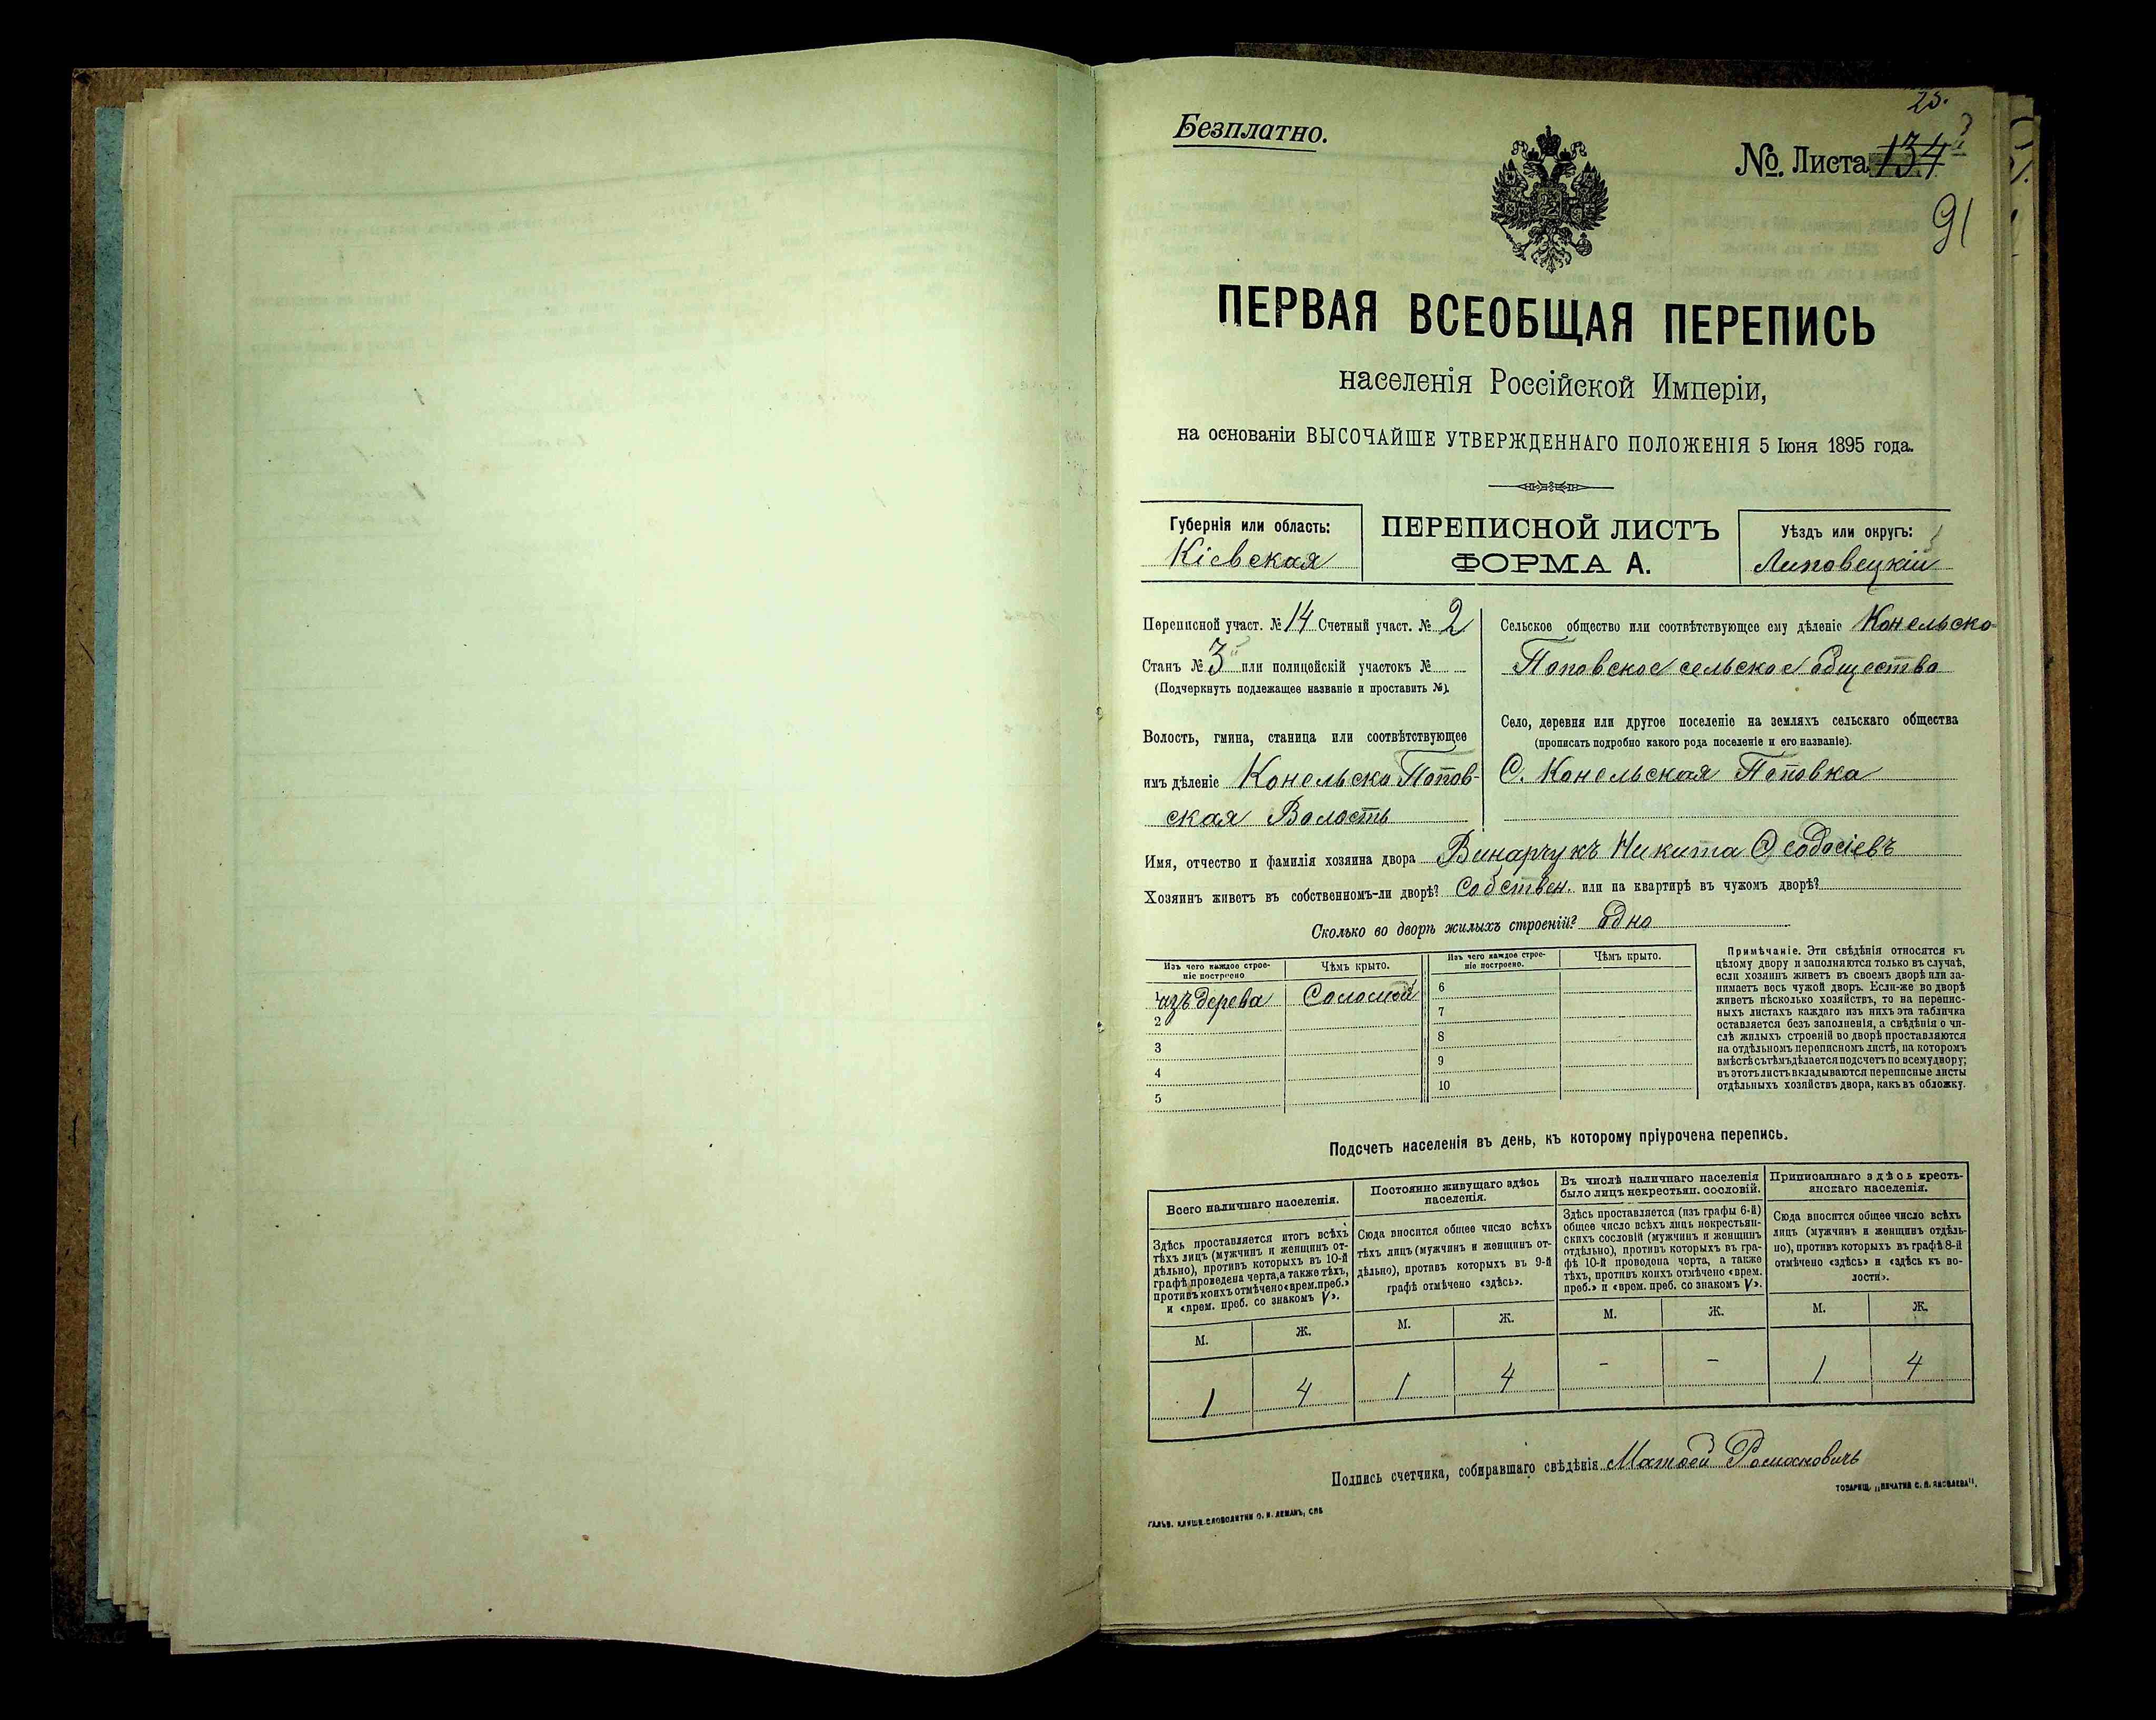 23.
Безплатно.
№. Листа 134
91
ПЕРВАЯ ВСЕОБЩАЯ ПЕРЕПИСЬ
населенія Россійской Имперіи,
на основаніи ВЫСОЧАЙШЕ УТВЕРЖДЕННАГО ПОЛОЖЕНІЯ 5 Іюня 1895 года.
Губернія или область:
Кіевская
ПЕРЕПИСНОЙ ЛИСТЪ
ФОРМА А.
Уѣздъ или округъ:
Липовецкій
Переписной участ. № 14 Счетный участ. № 2
Станъ № 3 или полицейскій участокъ №
(Подчеркнуть подлежащее названіе и проставить №).
Волость, гмина, станица или соотвѣтствующее
имъ дѣленіе Конельско Попов-
ская Волость
Сельское общество или соотвѣтствующее ему дѣленіе Конельско-
Поповское сельское общество
Село, деревня или другое поселеніе на земляхъ сельскаго общества
(прописать подробно какого рода поселеніе и его названіе).
С. Конельская Поповка
Имя, отчество и фамилія хозяина двора Винарчукъ Никита Ѳеодосіевъ
Хозяинъ живетъ въ собственномъ-ли дворѣ? Собствен. или на квартирѣ въ чужомъ дворѣ?
Сколько во дворѣ жилыхъ строеній? одно
Изъ чего каждое строе-
ніе построено
Чѣмъ крыто.
1 изъ дерева Соломой
2
3
4
5
Изъ чего каждое строе-
ніе построено.
Чѣмъ крыто.
6
7
8
9
10
Примѣчаніе. Эти свѣдѣнія относятся къ
цѣлому двору и заполняются только въ случаѣ,
если хозяинъ живетъ въ своемъ дворѣ или за-
нимаетъ весь чужой дворъ. Если-же во дворѣ
живетъ нѣсколько хозяйствъ, то на перепис-
ныхъ листахъ каждаго изъ нихъ эта табличка
оставляется безъ заполненія, а свѣдѣнія о чи-
слѣ жилыхъ строеній во дворѣ проставляются
на отдѣльномъ переписномъ листѣ, на которомъ
вмѣстѣ съ тѣмъ дѣлается подсчетъ по всему двору;
въ этотъ листъ вкладываются переписные листы
отдѣльныхъ хозяйствъ двора, какъ въ обложку.
Подсчетъ населенія въ день, къ которому пріурочена перепись.
Всего наличнаго населенія.
Здѣсь проставляется итогъ всѣхъ
тѣхъ лицъ (мужчинъ и женщинъ от-
дѣльно), противъ которыхъ въ 10-й
графѣ проведена черта, а также тѣхъ,
противъ коихъ отмѣчено «врем. преб.»
и «врем. преб. со знакомъ V».
М. Ж.
1 4
Постоянно живущаго здѣсь
населенія.
Сюда вносится общее число всѣхъ
тѣхъ лицъ (мужчинъ и женщинъ от-
дѣльно), противъ которыхъ въ 9-й
графѣ отмѣчено «здѣсь».
М. Ж.
1 4
Въ числѣ наличнаго населенія
было лицъ некрестьян. сословій.
Здѣсь проставляется (изъ графы 6-й)
общее число всѣхъ лицъ некрестьян-
скихъ сословій (мужчинъ и женщинъ
отдѣльно), противъ которыхъ въ гра-
фѣ 10-й проведена черта, а также
тѣхъ, противъ коихъ отмѣчено «врем.
преб.» и «врем. преб. со знакомъ V».
М. Ж.
- -
Приписаннаго здѣсь кресть-
янскаго населенія.
Сюда вносится общее число всѣхъ
лицъ (мужчинъ и женщинъ отдѣль-
но), противъ которыхъ въ графѣ 8-й
отмѣчено «здѣсь» и «здѣсь къ во-
лости».
М. Ж.
1 4
Подпись счетчика, собиравшаго свѣдѣнія Матвѣй Романовичъ
ТОВАРИЩ. „ПЕЧАТНЯ С. П. ЯКОВЛЕВА".
ГАЛЬВ. КЛИШЕ СЛОВОЛИТНИ О. И. ЛЕМАНЪ, СПБ